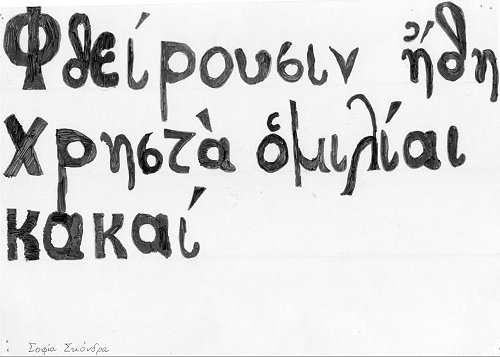 Φθείρουσιν ἤθη
χρηστὰ ὁμιλίαι
κακαί
Σοφία Σκόνδρα